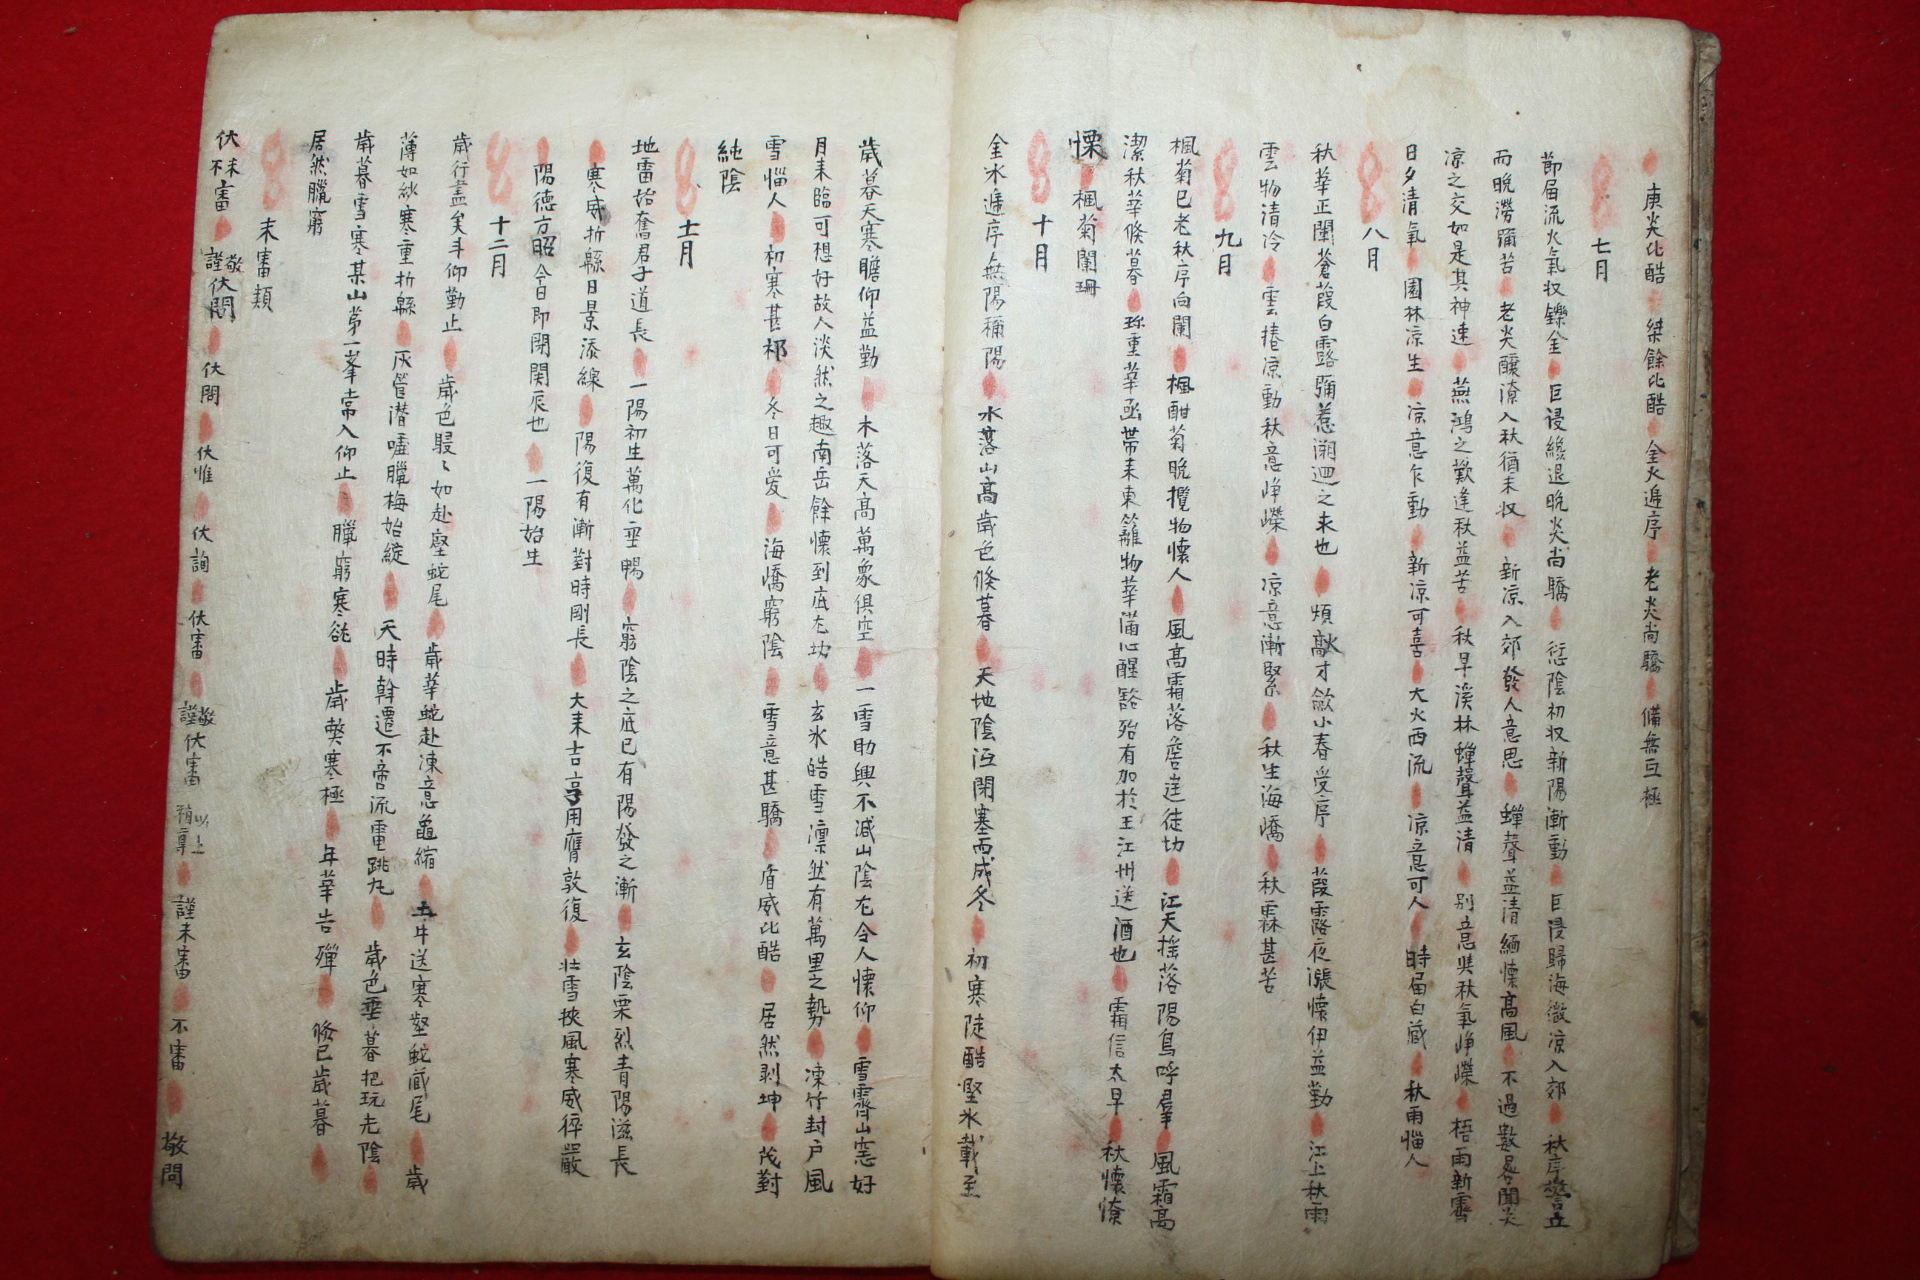 庚炎比酷 桀餘比酷 金火遞序 老炎尚驕 備無亘極
七月
節届流火氣収鑠金 巨浸纔退晩炎尚驕 愆陰初収新陽漸動 巨浸歸海微凉入郊 秋序
而晩澇踊苦 老炎釀潦入秋猶未収 新凉入郊發人意思 蟬聲益清緬懷高風 不過數
凉之交如是其神速 燕鴻之歎逢秋益苦 秋早溪林蟬聲益清 別意與秋氣崢嶸 梧雨新霽
日夕清氣 園林凉生 凉意乍動 新凉可喜 大火西流 凉意可人 時届白藏 秋雨惱人
八月
秋華正闌蒼葭白露彌惹溯迴之求也 煩歊才歛小春受序 葭露夜漲懷伊益勤 江上秋雨
雲物清冷 雲捲凉動秋意崢嶸 凉意漸緊 秋生海嶠 秋霖甚苦
九月
楓菊已老秋序向闌 楓酣菊晩攬物懷人 風高霜落詹迬徒切 江天摇落陽鳥呼羣 風霜高
潔秋華倐暮 珎重華函帶来東籬物華滿心醒豁殆有加於王江州送酒也 霜信太早 秋懷憭
慄 楓菊闌珊
十月
金水遞序無陽稱陽 水落山高歲色倐暮 天地陰沍閉塞而成冬 初寒陡酷堅氷載至
歲暮天寒瞻仰益勤 木落天高萬象俱空 一雪助興不减山陰尤令人懷仰 雪霽山窓好
月来臨可想好故人淡然之趣南岳餘懷到底尤切 玄氷皓雪凛然有萬里之勢 凍竹封户風
雪惱人 初寒甚祁 冬日可愛 海嶠窮陰 雪意甚驕 盾威比酷 居然剥坤 茂對
純陰
十一月
地雷始奮君子道長 一陽初生萬化亜暢 窮陰之底已有陽發之漸 玄陰栗烈青陽滋長
寒威折緜日景添線 陽復有漸對時剛長 大来吉亨用膺敦復 壯雪挾風寒威猝嚴
陽德方昭今日即閉関辰也 一陽始生
十二月
歲行盡矣斗仰勤止 歲色駸〻如赴壑蛇尾 歲華蛇赴凍意龜縮 土牛送寒壑蛇藏尾 歲
薄如紗寒重折緜 灰管潜噓臘梅始綻 天時斡遷不啻流電跳丸 歲色垂暮把玩光陰
歲暮雪寒某山第一峯常入仰止 臘窮寒䬽 歲弊寒極 年華告殫 倐已歲暮
居然臘窮
未審類
伏未審 不審 謹敬伏問 伏問 伏惟 伏詢 伏審 謹敬伏審 以上稍尊 謹未審 不審 敬問